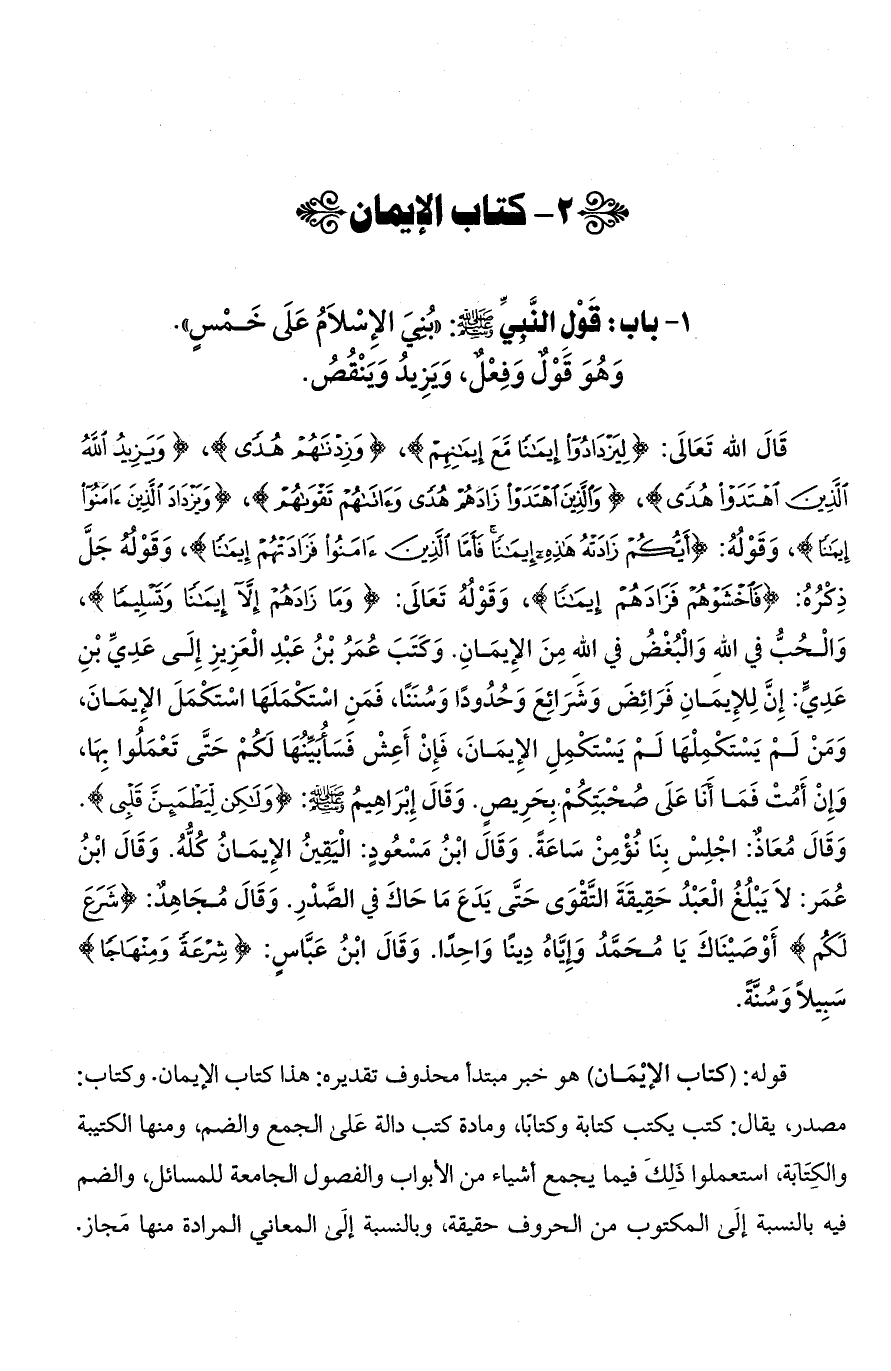 ٢- كتاب الإيمان
١- باب: قَوْلِ النَّبِيِّ ﷺ: «بُنِيَ الإِسْلاَمُ عَلَى خَمْسٍ».
وَهُوَ قَوْلٌ وَفِعْلٌ، وَيَزِيدُ وَيَنْقُصُ.
قَالَ الله تَعَالَى: ﴿لِيَزْدَادُوٓا۟ إِيمَٰنًا مَّعَ إِيمَٰنِهِمْ﴾، ﴿وَزِدْنَٰهُمْ هُدًى﴾، ﴿وَيَزِيدُ ٱللَّهُ
ٱلَّذِينَ ٱهْتَدَوْا۟ هُدًى﴾، ﴿وَٱلَّذِينَ ٱهْتَدَوْا۟ زَادَهُمْ هُدًى وَءَاتَىٰهُمْ تَقْوَىٰهُمْ﴾، ﴿وَيَزْدَادَ ٱلَّذِينَ ءَامَنُوٓا۟
إِيمَٰنًا﴾، وَقَوْلُهُ: ﴿أَيُّكُمْ زَادَتْهُ هَٰذِهِۦٓ إِيمَٰنًا ۚ فَأَمَّا ٱلَّذِينَ ءَامَنُوا۟ فَزَادَتْهُمْ إِيمَٰنًا﴾، وَقَوْلُهُ جَلَّ
ذِكْرُهُ: ﴿فَٱخْشَوْهُمْ فَزَادَهُمْ إِيمَٰنًا﴾، وَقَوْلُهُ تَعَالَى: ﴿وَمَا زَادَهُمْ إِلَّآ إِيمَٰنًا وَتَسْلِيمًا﴾،
وَالْحُبُّ فِي اللهِ وَالْبُغْضُ فِي اللهِ مِنَ الإِيمَانِ. وَكَتَبَ عُمَرُ بْنُ عَبْدِ الْعَزِيزِ إِلَى عَدِيِّ بْنِ
عَدِيٍّ: إِنَّ لِلإِيمَانِ فَرَائِضَ وَشَرَائِعَ وَحُدُودًا وَسُنَنًا، فَمَنِ اسْتَكْمَلَهَا اسْتَكْمَلَ الإِيمَانَ،
وَمَنْ لَمْ يَسْتَكْمِلْهَا لَمْ يَسْتَكْمِلِ الإِيمَانَ، فَإِنْ أَعِشْ فَسَأُبَيِّنُهَا لَكُمْ حَتَّى تَعْمَلُوا بِهَا،
وَإِنْ أَمُتْ فَمَا أَنَا عَلَى صُحْبَتِكُمْ بِحَرِيصٍ. وَقَالَ إِبْرَاهِيمُ ﷺ: ﴿وَلَٰكِن لِّيَطْمَئِنَّ قَلْبِى﴾.
وَقَالَ مُعَاذٌ: اجْلِسْ بِنَا نُؤْمِنْ سَاعَةً. وَقَالَ ابْنُ مَسْعُودٍ: الْيَقِينُ الإِيمَانُ كُلُّهُ. وَقَالَ ابْنُ
عُمَر: لاَ يَبْلُغُ الْعَبْدُ حَقِيقَةَ التَّقْوَى حَتَّى يَدَعَ مَا حَاكَ فِي الصَّدْرِ. وَقَالَ مُجَاهِدٌ: ﴿شَرَعَ
لَكُم﴾ أَوْصَيْنَاكَ يَا مُحَمَّدُ وَإِيَّاهُ دِينًا وَاحِدًا. وَقَالَ ابْنُ عَبَّاسٍ: ﴿شِرْعَةً وَمِنْهَاجًا﴾
سَبِيلاً وَسُنَّةً.
قوله: (كتاب الإِيْمَان) هو خبر مبتدأ محذوف تقديره: هذا كتاب الإيمان. وكتاب:
مصدر، يقال: كتب يكتب كتابة وكتابًا، ومادة كتب دالة عَلَى الجمع والضم، ومنها الكتيبة
والكِتَابَة، استعملوا ذَلِكَ فيما يجمع أشياء من الأبواب والفصول الجامعة للمسائل، والضم
فيه بالنسبة إلَى المكتوب من الحروف حقيقة، وبالنسبة إلَى المعاني المرادة منها مَجاز.